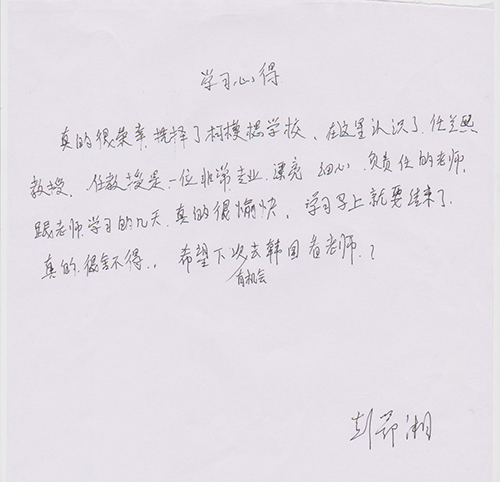 学习心得
真的很荣幸.选择了柯模思学校、在这里认识了.任兰熙
教授。任教授是一位非常专业.漂亮 细心.负责任的老师,
跟老师学习的几天.真的很愉快。学习马上就要结束了
真的.很舍不得.,希望下次去韩国看老师.?
有机会
彭 湘